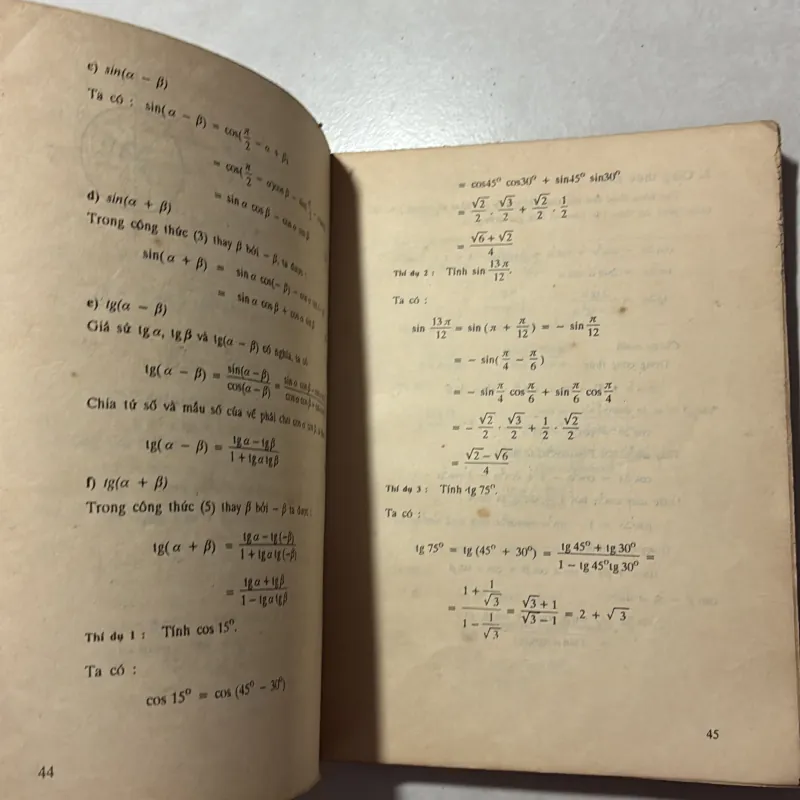 c) sin(α − β)
Ta có : sin(α − β) = cos(π/2 − α + β)
= cos(π/2 − α)cosβ −
= sin α cos β − cos α sin β
d) sin(α + β)
Trong công thức (3) thay β bởi − β, ta được :
sin(α + β) = sin α cos(−β) −
= sin α cos β + cos α sin β
e) tg(α − β)
Giả sử tg α, tg β và tg(α − β) có nghĩa, ta có
tg(α − β) = sin(α−β)/cos(α−β) =
Chia tử số và mẫu số của vế phải cho
tg(α − β) = (tg α − tg β)/(1 + tg α tg β)
f) tg(α + β)
Trong công thức (5) thay β bởi − β ta được :
tg(α + β) = (tg α − tg(−β))/(1 + tg α tg(−β))
= (tg α + tg β)/(1 − tg α tg β)
Thí dụ 1 : Tính cos 15°.
Ta có :
cos 15° = cos (45° − 30°)
44
= cos45° cos30° + sin45° sin30°
= √2/2 . √3/2 + √2/2 . 1/2
= (√6 + √2)/4
Thí dụ 2 : Tính sin 13π/12.
Ta có :
sin 13π/12 = sin (π + π/12) = − sin π/12
= − sin(π/4 − π/6)
= − sin π/4 cos π/6 + sin π/6 cos π/4.
= − √2/2 . √3/2 + 1/2 . √2/2
= (√2 − √6)/4
Thí dụ 3 : Tính tg 75°.
Ta có :
tg 75° = tg (45° + 30°) = (tg 45° + tg 30°)/(1 − tg 45° tg 30°) =
= (1 + 1/√3)/(1 − 1/√3) = (√3 + 1)/(√3 − 1) = 2 + √3
45